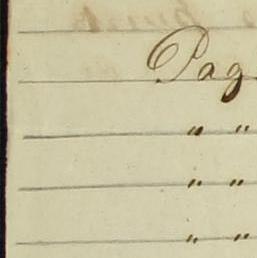 Pag.
" "
" "
" "